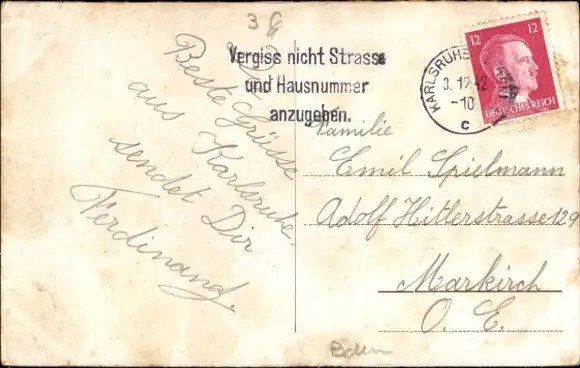 3
Vergiss nicht Strasse
und Hausnummer
anzugeben.
KARLSRUHE
3.12.42
-10
c
12 12
DEUTSCHES REICH
Beste Grüsse
aus Karlsruhe.
sendet Dir
Ferdinand.
Familie
Emil Spielmann
Adolf Hitlerstrasse 129
Markirch
O. E.